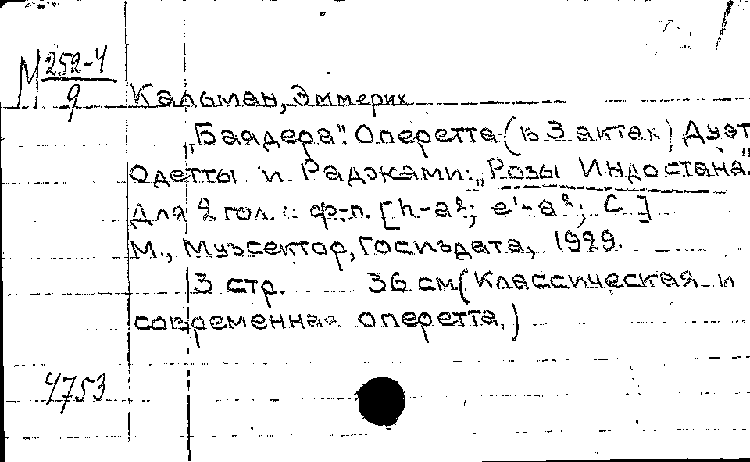 М 252-4
9
Кальман, Эммерих
„Баядера". Оперетта (в 3 актах) Дуэт
Одетты и Раджами: „Розы Индостана".
Для 2 гол. с ф-п. [h-a²; e¹-a²; C]
М., Музсектор, Госиздата, 1929.
3 стр. 36 см (Классическая и
современная оперетта.)
4753